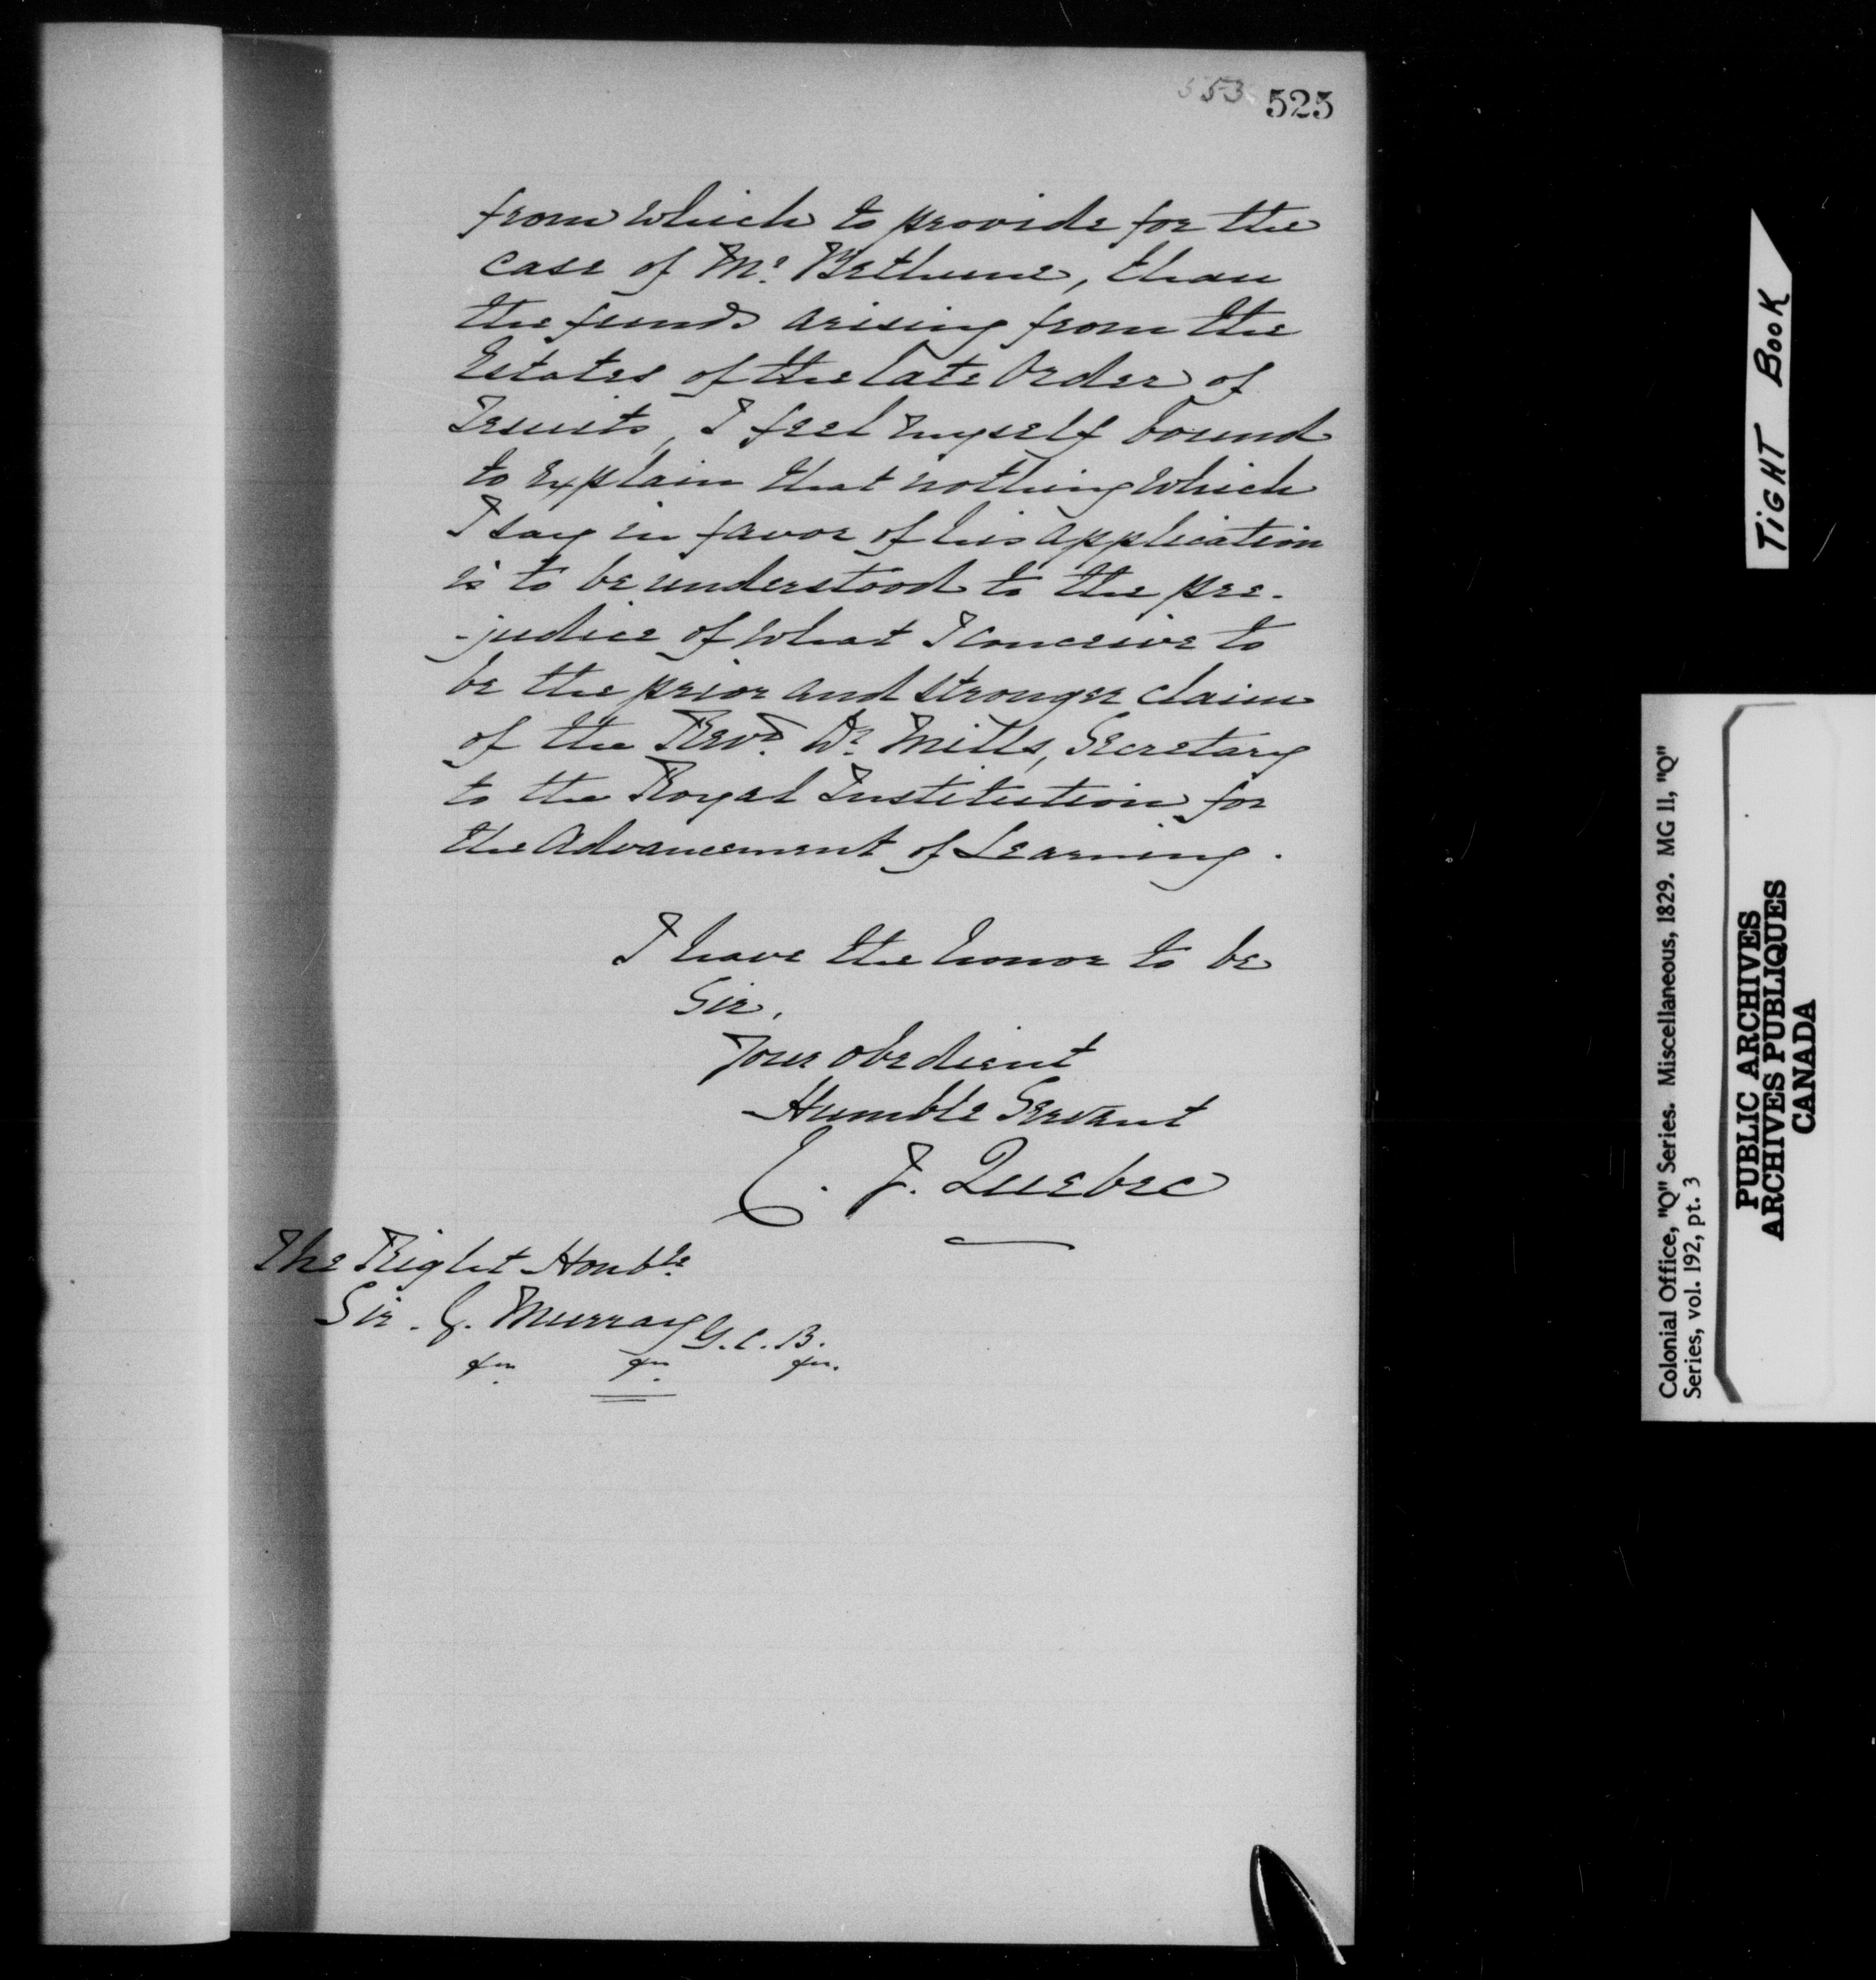 553 525
from which to provide for the
case of Mr. Bethune, than
the funds arising from the
Estates of the late Order of
Jesuits, I feel myself bound
to explain that nothing which
I say in favor of his application
is to be understood to the pre-
-judice of what I conceive to
be the prior and stronger claim
of the Revd. Dr. Mills, Secretary
to the Royal Institution for
the Advancement of Learning.
I have the honor to be
Sir,
Your obedient
Humble Servant
C. J. Quebec
The Right Honble.
Sir. G. Murray G.C.B.
TIGHT BOOK
Colonial Office, "Q" Series. Miscellaneous, 1829. MG 11, "Q"
Series, vol. 192, pt. 3
PUBLIC ARCHIVES
ARCHIVES PUBLIQUES
CANADA